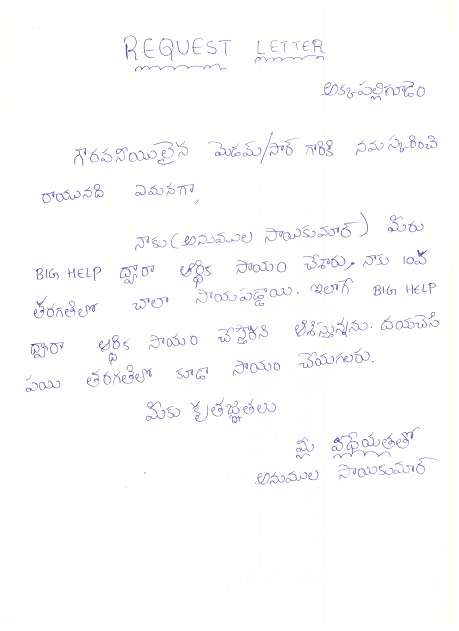 REQUEST LETTER
అక్కపల్లిగూడెం
గౌరవనీయులైన మేడమ్/సార్ గారికి నమస్కరించి
రాయునది ఏమనగా,
నాకు (అనుముల సాయికుమార్) మీరు
BIG HELP ద్వారా ఆర్థిక సాయం చేశారు, నాకు 10వ
తరగతిలో చాలా సాయపడ్డాయి. ఇలాగే BIG HELP
ద్వారా ఆర్థిక సాయం చేస్తారని ఆశిస్తున్నను. దయచేసి
పయి తరగతిలో కూడా సాయం చేయగలరు.
మీకు కృతజ్ఞతలు
మీ విధేయతతో
అనుముల సాయికుమార్